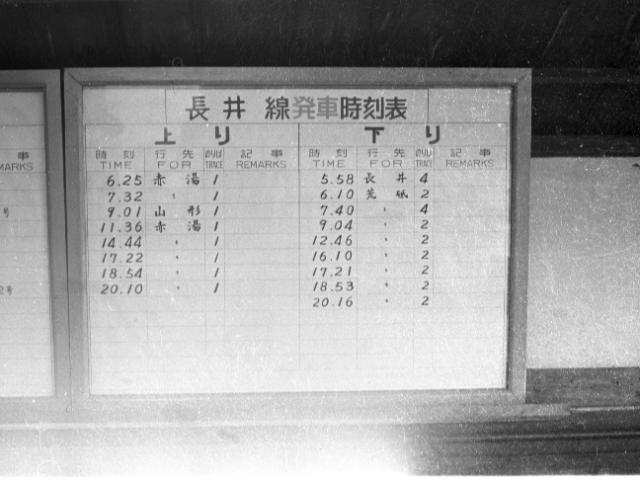 長井線発車時刻表
上り 下り
時刻 行先 のりば 記事 時刻 行先 のりば 記事
TIME FOR TRACK REMARKS TIME FOR TRACK REMARKS
6.25 赤湯 1 5.58 長井 4
7.32 〃 1 6.10 荒砥 2
9.01 山形 1 7.40 〃 4
11.36 赤湯 1 9.04 〃 2
14.44 〃 1 12.46 〃 2
17.22 〃 1 16.10 〃 2
18.54 〃 1 17.21 〃 2
20.10 〃 1 18.53 〃 2
20.16 〃 2
事
MARKS
号
2号